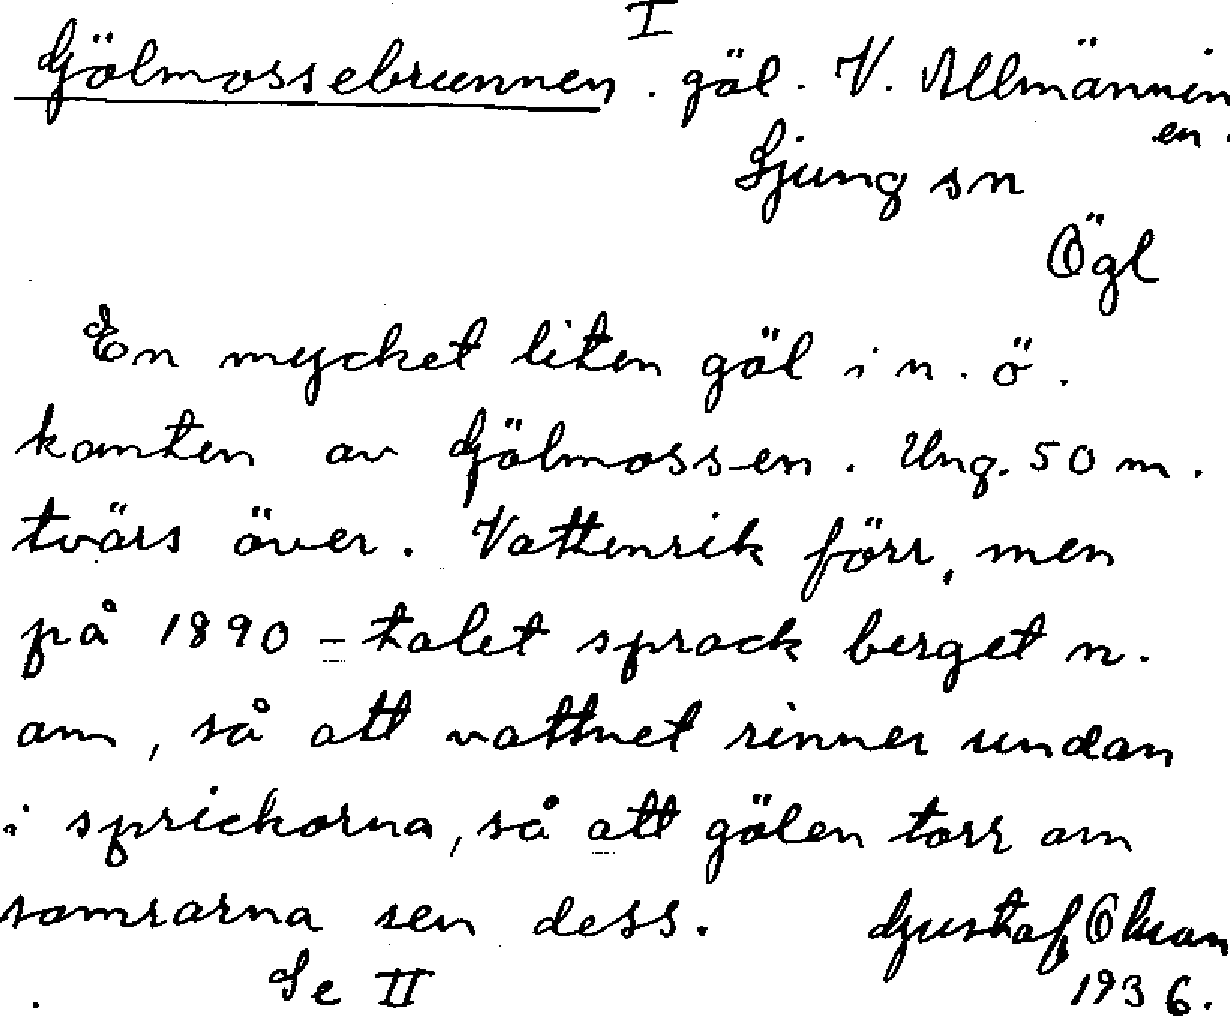 I
Gölmossebrunnen. göl. V. Allmännin
en.
Ljung sn
Ögl
En mycket liten göl i n. ö.
kanten av Gölmossen. Ung. 50 m.
tvärs över. Vattenrik förr, men
på 1890-talet sprack berget n.
om, så att vattnet rinner undan
i sprickorna, så att gölen torr om
somrarna sen dess. Gustaf
Se II 1936.